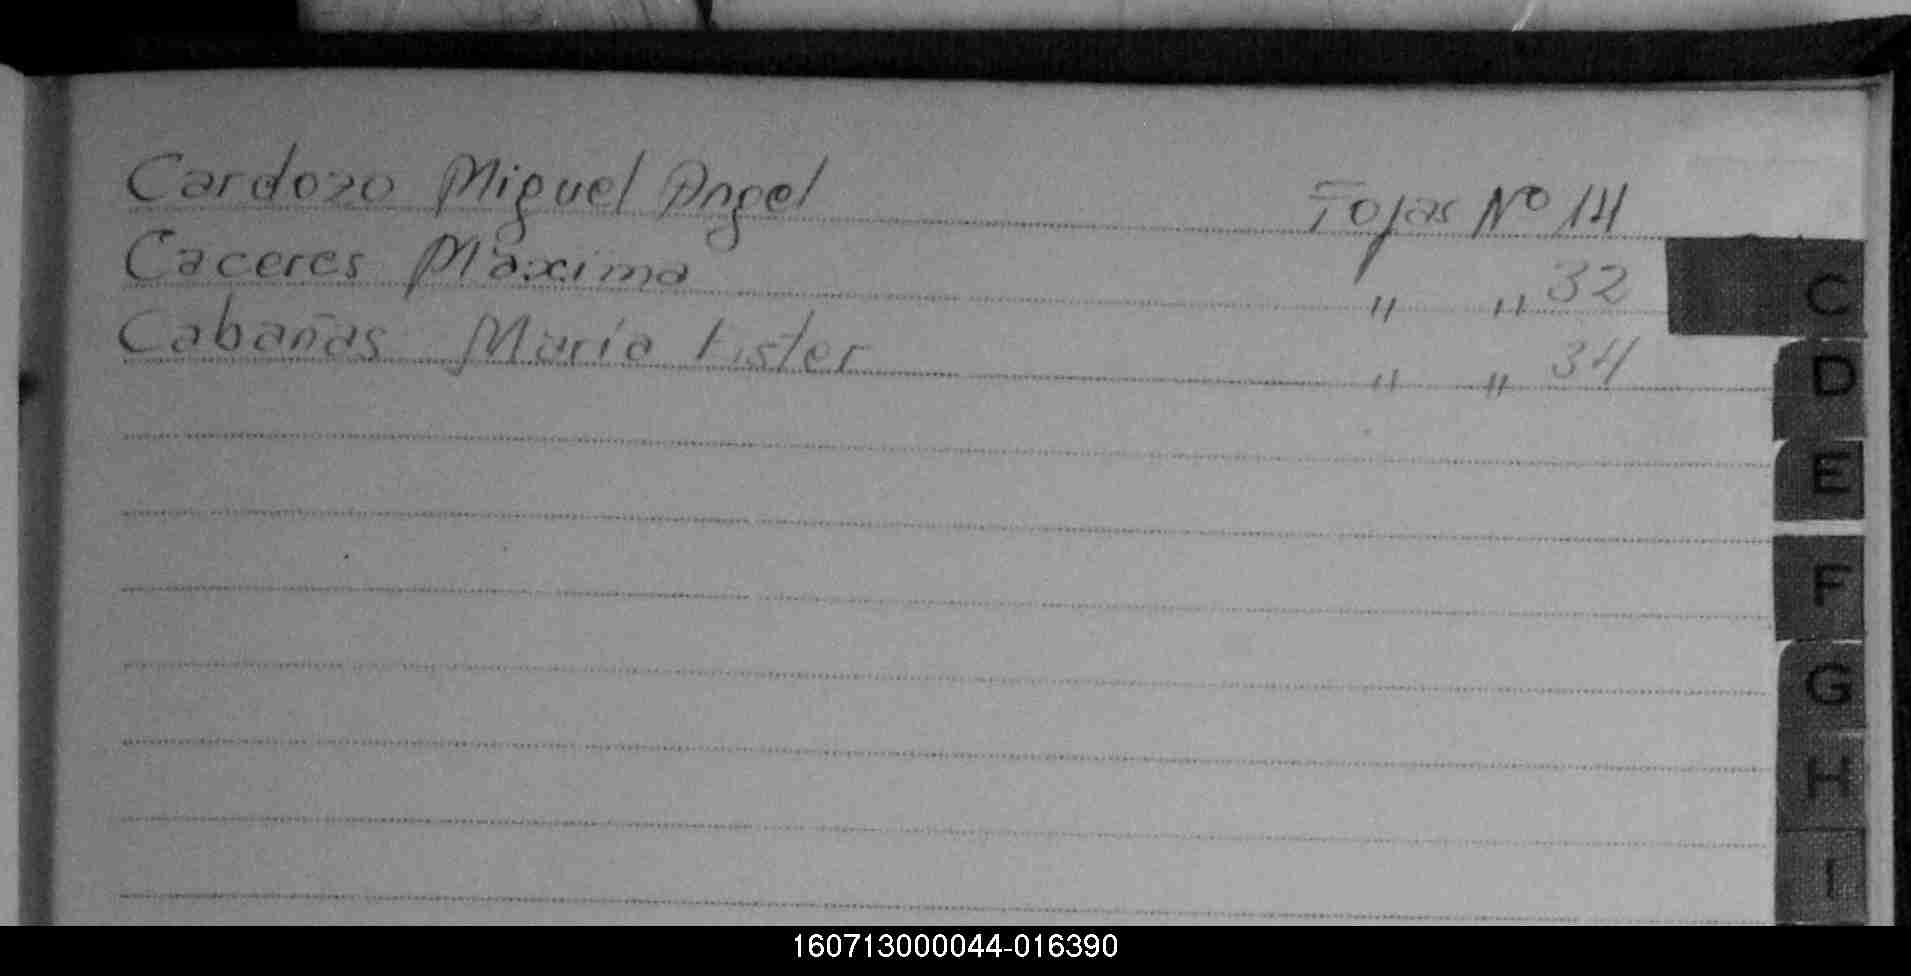 Cardozo Miguel Angel Fojas Nº 14
Caceres Maxima " " 32
Cabañas Maria Ester " " 34
C
D
E
F
G
H
I
160713000044-016390